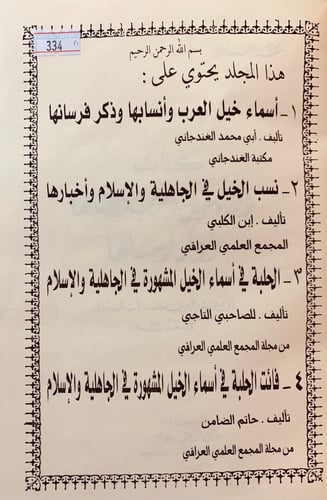 334
بسم الله الرحمن الرحيم
هذا المجلد يحتوي على :
١ - أسماء خيل العرب وأنسابها وذكر فرسانها
تأليف . أبي محمد الغندجاني
مكتبة الغندجاني
٢ - نسب الخيل في الجاهلية والإسلام وأخبارها
تأليف . إبن الكلبي
المجمع العلمي العراقي
٣ - الحلبة في أسماء الخيل المشهورة في الجاهلية والإسلام
تأليف . للصاحبي التاجي
من مجلة المجمع العلمي العراقي
٤ - فائت الحلبة في أسماء الخيل المشهورة في الجاهلية والإسلام
تأليف . حاتم الضامن
من مجلة المجمع العلمي العراقي